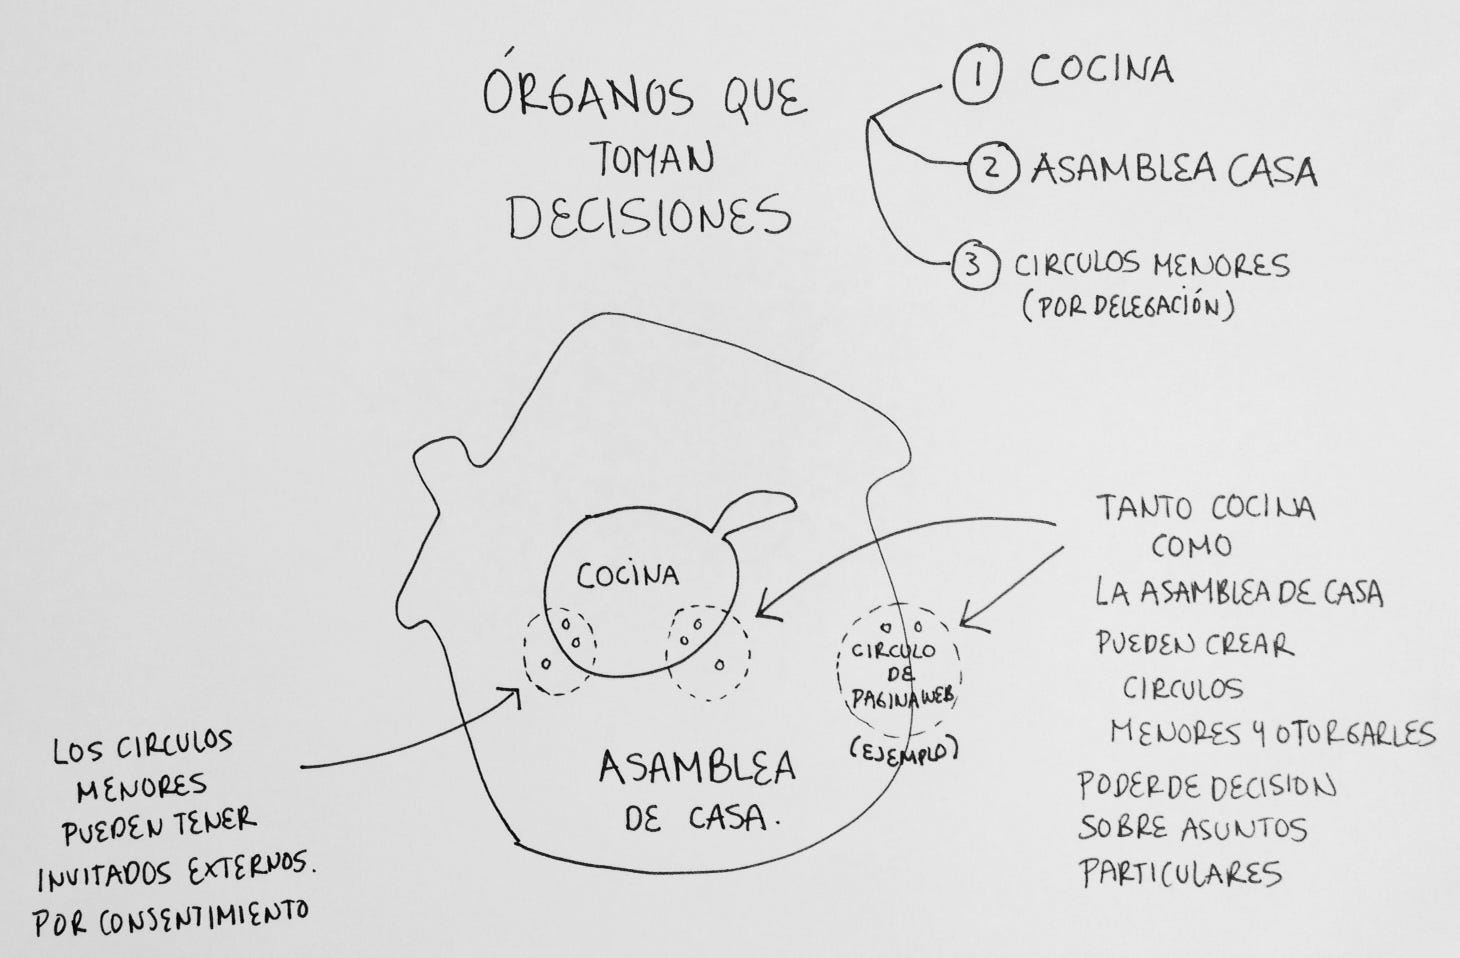 ÓRGANOS QUE
TOMAN
DECISIONES
1 COCINA
2 ASAMBLEA CASA
3 CIRCULOS MENORES
(POR DELEGACIÓN)
COCINA
TANTO COCINA
COMO
LA ASAMBLEA DE CASA
PUEDEN CREAR
CIRCULOS
MENORES Y OTORGARLES
PODER DE DECISION
SOBRE ASUNTOS
PARTICULARES
CIRCULO
DE
PAGINA WEB
(EJEMPLO)
ASAMBLEA
DE CASA.
LOS CIRCULOS
MENORES
PUEDEN TENER
INVITADOS EXTERNOS.
POR CONSENTIMIENTO